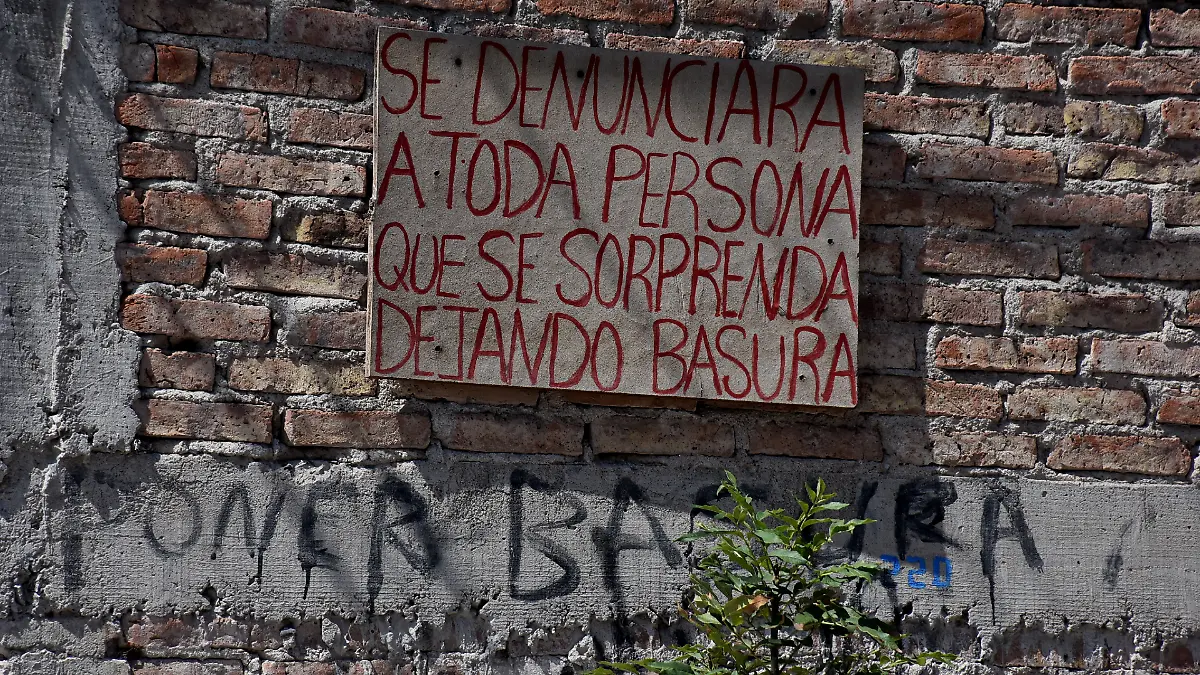 SE DENUNCIARA
A TODA PERSONA
QUE SE SORPRENDA
DEJANDO BASURA
PONER BASURA
220